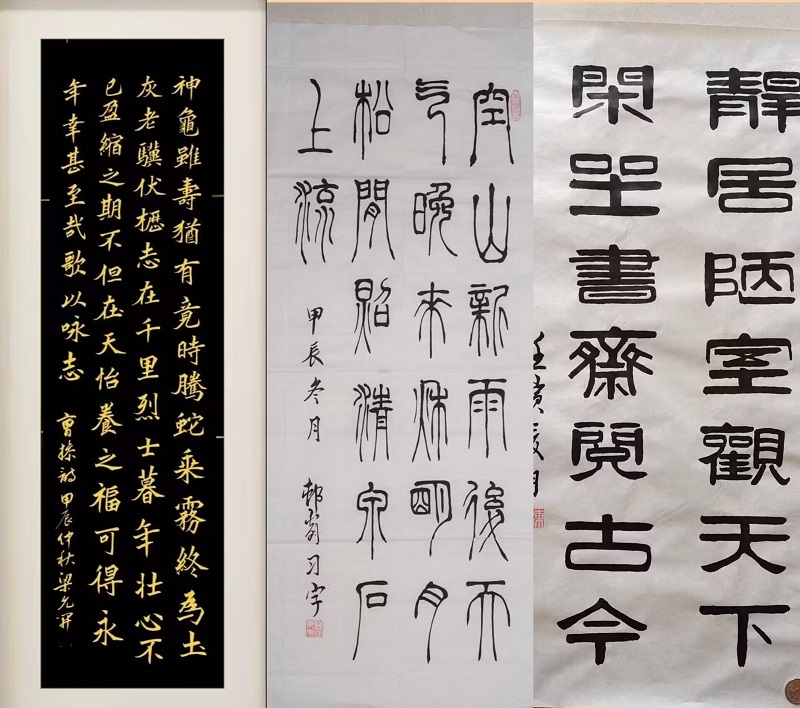 神龜雖壽猶有竟時騰蛇乘霧終為土
灰老驥伏櫪志在千里烈士暮年壯心不
已盈縮之期不但在天怡養之福可得永
年幸甚至哉歌以咏志 曹操詩甲辰仲秋梁允
空山新雨後天
气晚來秌明月
松閒照清泉石
上流 甲辰冬月 习字
靜居陋室觀天下
閑坐書齋閱古今